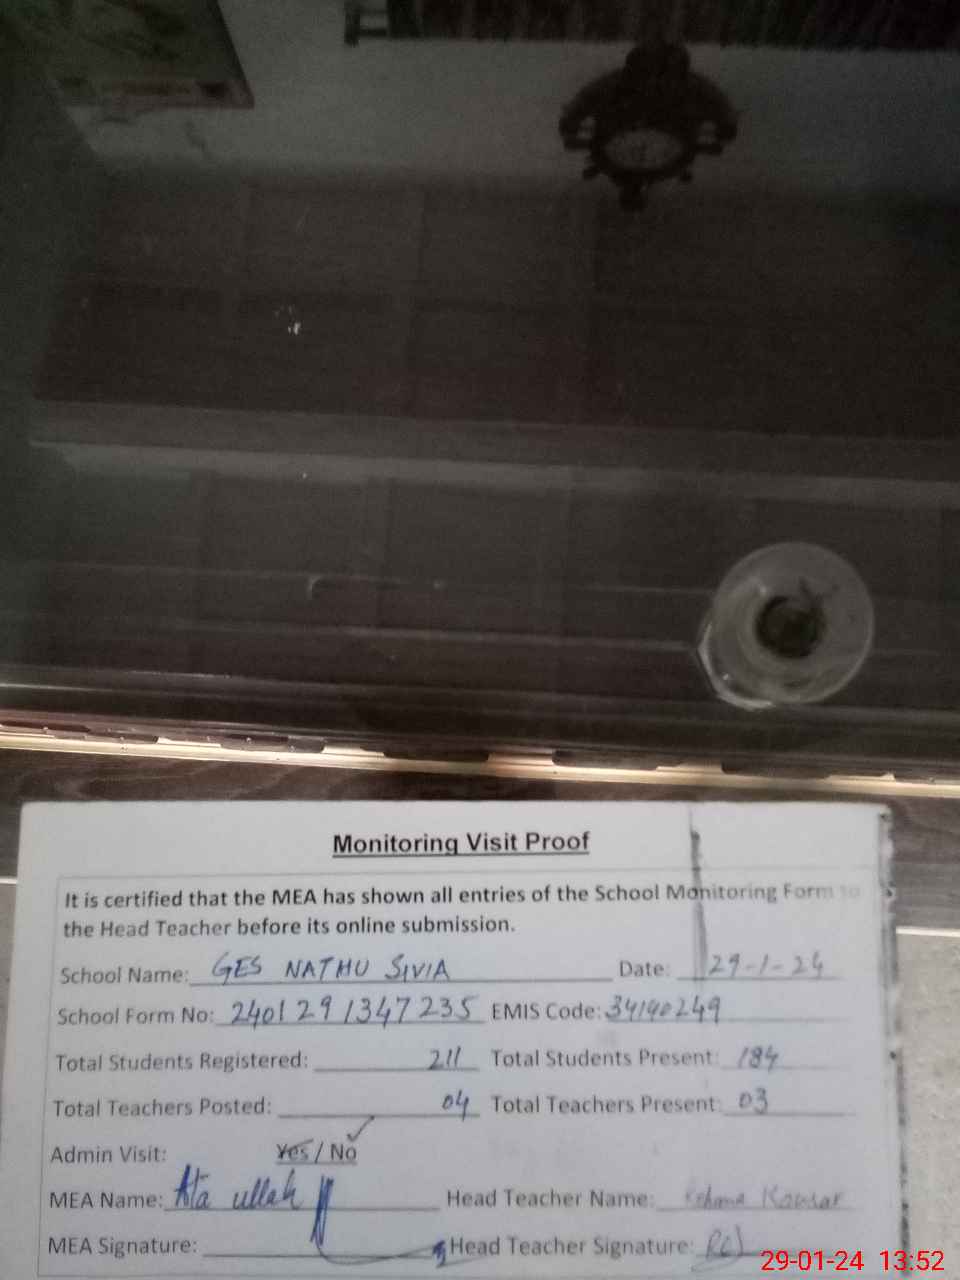 Monitoring Visit Proof
It is certified that the MEA has shown all entries of the School Monitoring Form to
the Head Teacher before its online submission.
School Name: GES NATHU SIVIA Date: 29-1-24
School Form No: 2401291347235 EMIS Code: 34140249
Total Students Registered: 211 Total Students Present: 184
Total Teachers Posted: 04 Total Teachers Present: 03
Admin Visit: Yes / No
MEA Name: Ata ullah Head Teacher Name: Kousar
MEA Signature: Head Teacher Signature:
29-01-24 13:52